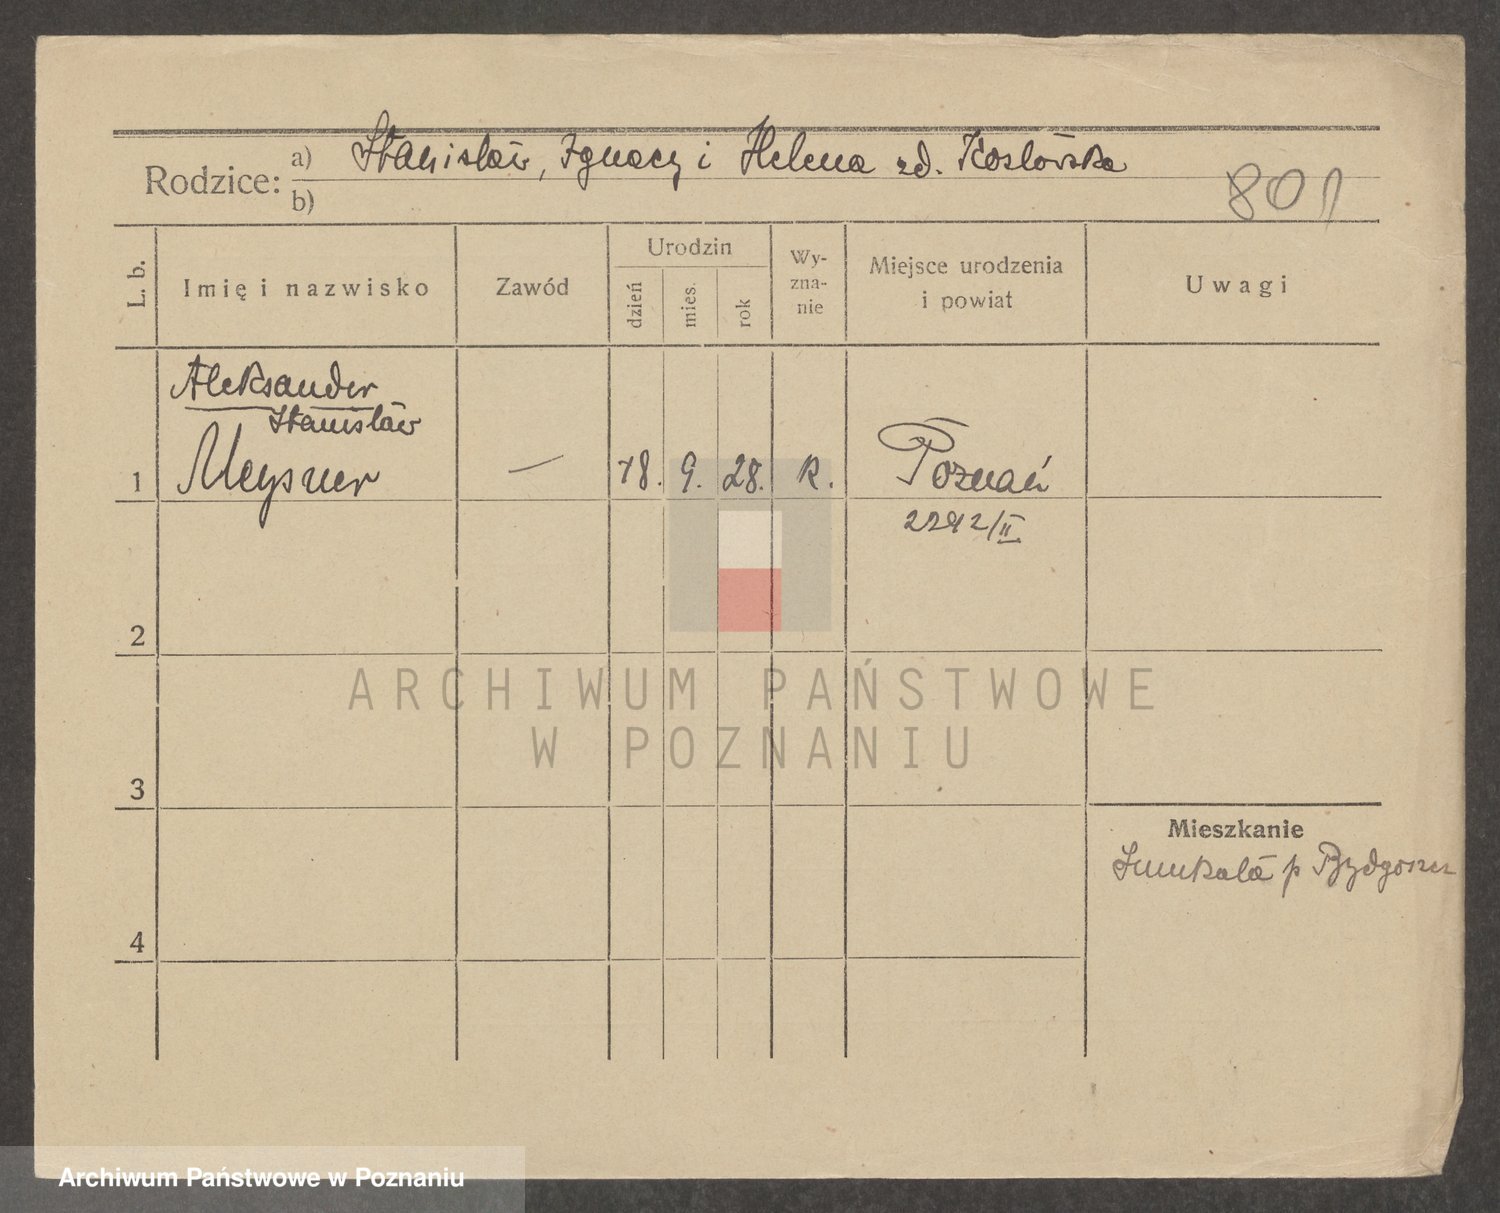 Rodzice: a) Stanisław, Ignacy i Helena zd. Kozłowska
b)
801
L. b.
Imię i nazwisko
Zawód
Urodzin
dzień
mies.
rok
Wy-
zna-
nie
Miejsce urodzenia
i powiat
Uwagi
Aleksander
Stanisław
1 Meysner — 18. 9. 28. R. Poznań
2292/II
2
3
4
Mieszkanie
Smukała p Bydgoszcz
ARCHIWUM PAŃSTWOWE
W POZNANIU
Archiwum Państwowe w Poznaniu